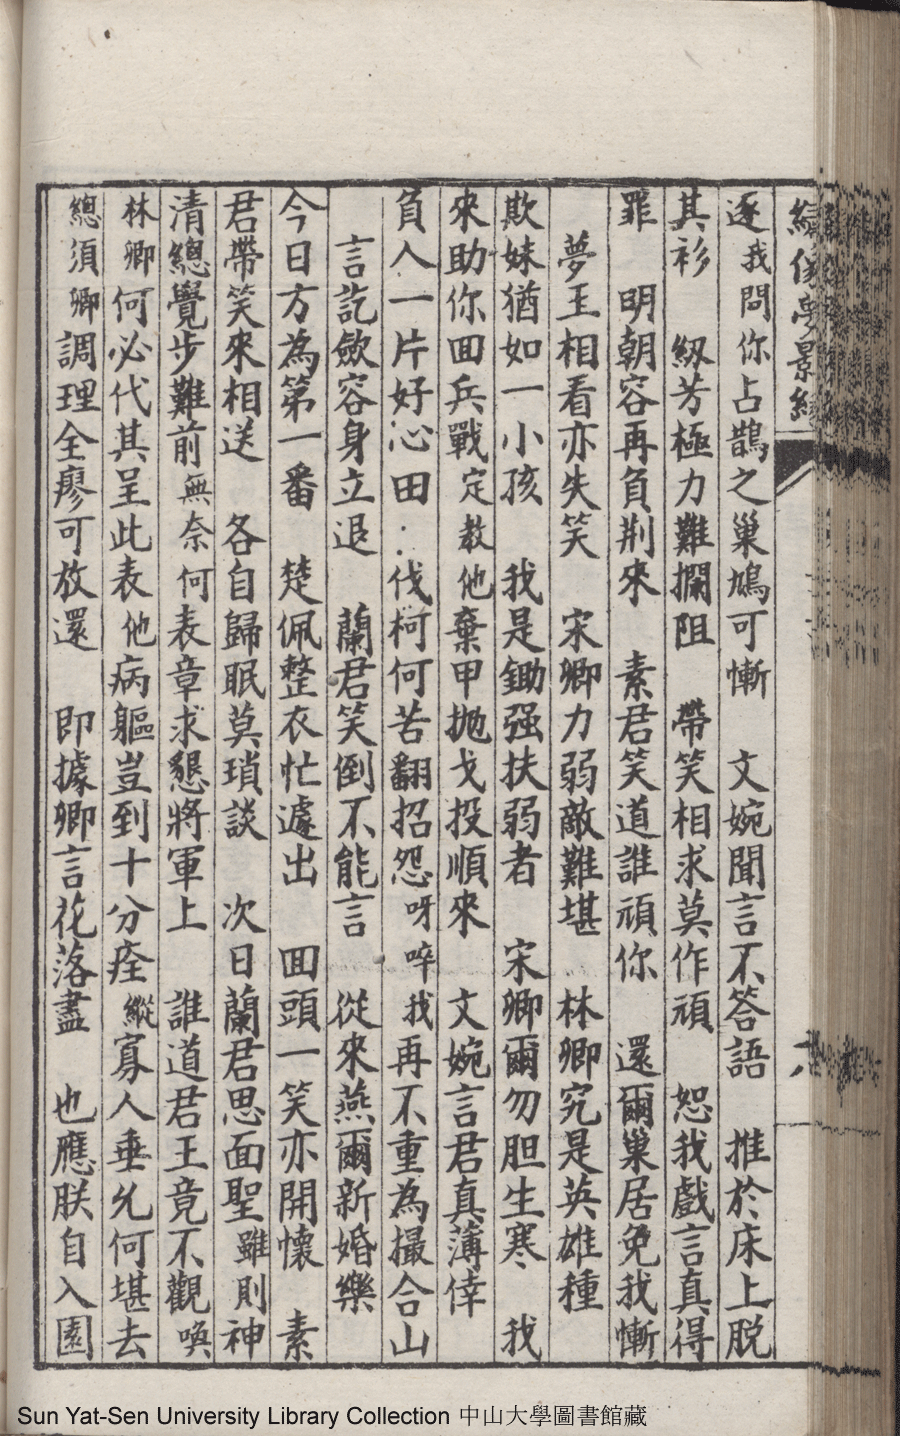 繡像夢景緣
六
逐我問你占鵲之巢鳩可慚　文婉聞言不答語　推於床上脫
其衫　紉芳極力難攔阻　帶笑相求莫作頑　恕我戲言真得
罪　明朝容再負荆來　素君笑道誰頑你　還爾巢居免我慚
夢王相看亦失笑　宋卿力弱敵難堪　林卿究是英雄種
欺妹猶如一小孩　我是鋤强扶弱者　宋卿爾勿胆生寒　我
來助你囬兵戰定教他棄甲拋戈投順來　文婉言君真薄倖
負人一片好心田　伐柯何苦翻招怨呀啐我再不重為撮合山
言訖斂容身立退　蘭君笑倒不能言　從來燕爾新婚樂
今日方為第一番　楚佩整衣忙遽出　囬頭一笑亦開懷　素
君帶笑來相送　各自歸眠莫瑣談　次日蘭君思面聖雖則神
清總覺步難前無奈何表章求懇將軍上　誰道君王竟不觀喚
林卿何必代其呈此表他病軀豈到十分痊縱寡人垂允何堪去
總須卿調理全廖可放還　即據卿言花落盡　也應朕自入園
Sun Yat-Sen University Library Collection 中山大學圖書館藏